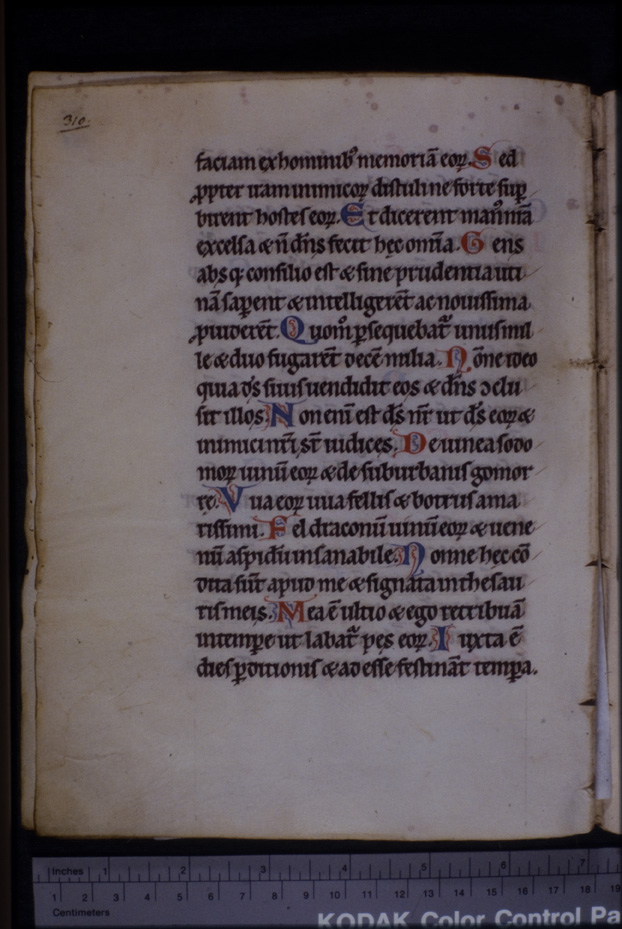 310.
faciam ex hominib᷒ memoriā eoꝝ. Sed
ꝓpter iram inimicoꝝ distuli ne forte suꝑ
birent hostes eoꝝ. Et dicerent man᷒ nr̄a
excelsa & ñ dn̄s fecit hęc omīa. Gens
absq; consilio est & sine prudentia uti
nā saꝑent & intelligerēt ac nouissima
ꝓuiderēt. Quom̊ ꝑsequebat᷑ unus mil
le & duo fugarēt decē milia. Nōne ideo
quia ds̄ suus uendidit eos & dn̄s ↄclu
sit illos. Non eni est ds̄ nr̄ ut ds̄ eoꝝ &
inimici nr̄i st̄ iudices. De uinea sodo
moꝝ uinū eoꝝ & de suburbanis gomor
rę. Vua eoꝝ uua fellis & botrus ama
rissimi. Fel draconū uinū eoꝝ & uene
nū aspidū insanabile. Nonne hęc cō
dita sūt apud me & signata in thesau
ris meis. Mea ē ultio & ego retribuā
in tempe ut labat᷑ pes eoꝝ. Iuxta ē
dies ꝑditionis & adesse festinānt tempa.
Inches 1 2 3 4 5 6 7
1 2 3 4 5 6 7 8 9 10 11 12 13 14 15 16 17 18 19
Centimeters
KODAK Color Control Pa